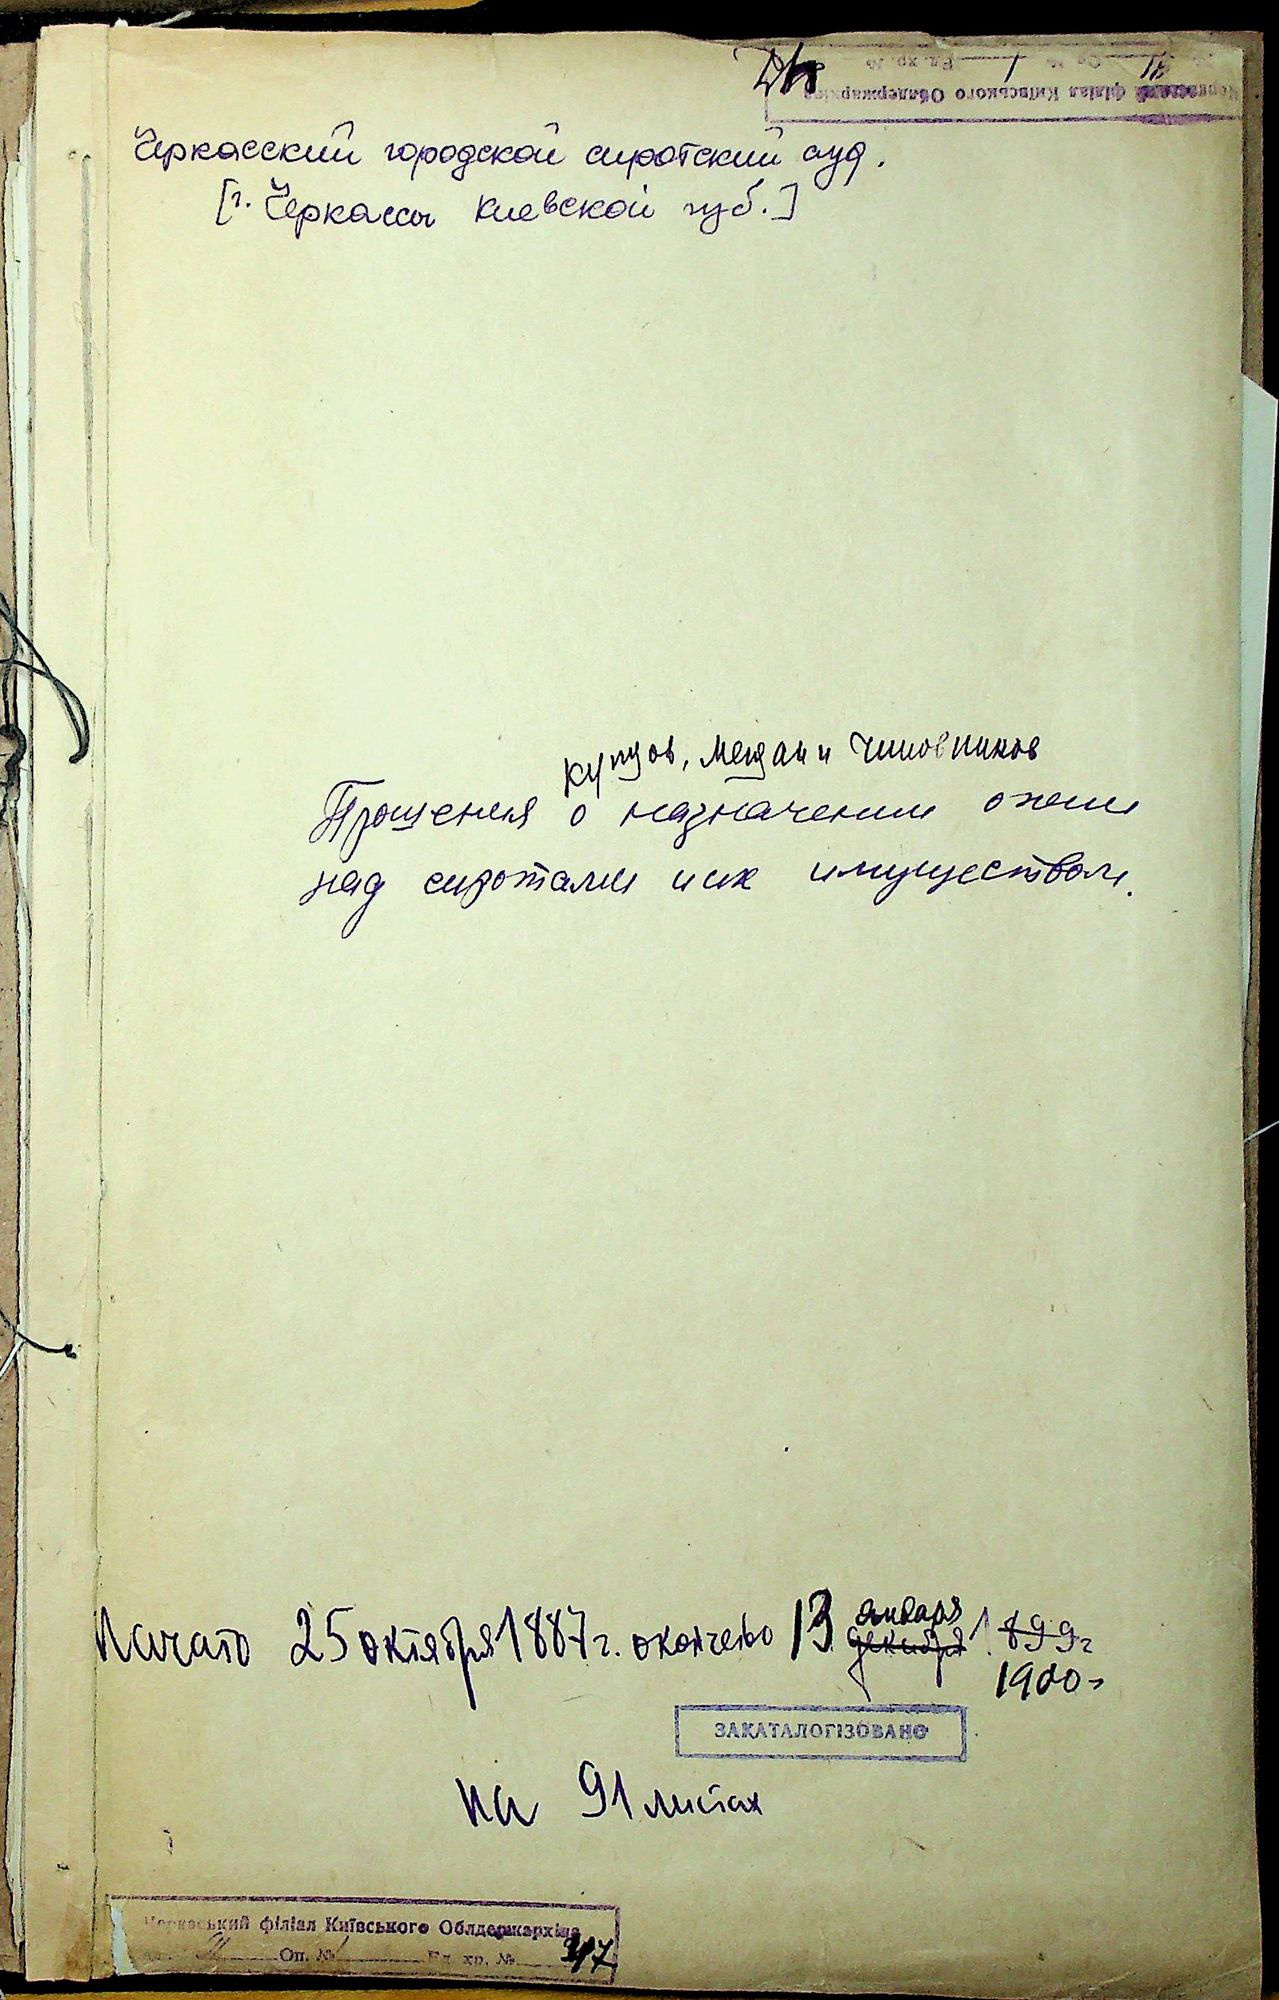 Черкаський філіал Київського Облдержархіва
Оп. № 1 Ед. хр. №
Черкасский городской сиротский суд.
[г. Черкассы Киевской губ.]
купцов, мещан и чиновников
Прошения о назначении опеки
над сиротами и их имуществом.
Начато 25 октября 1887 г. окончено 13 января
декабря 1899 г
1900 г
ЗАКАТАЛОГІЗОВАНО
на 91 листах
Черкаський філіал Київського Облдержархіва
Оп. № Ед. хр. №